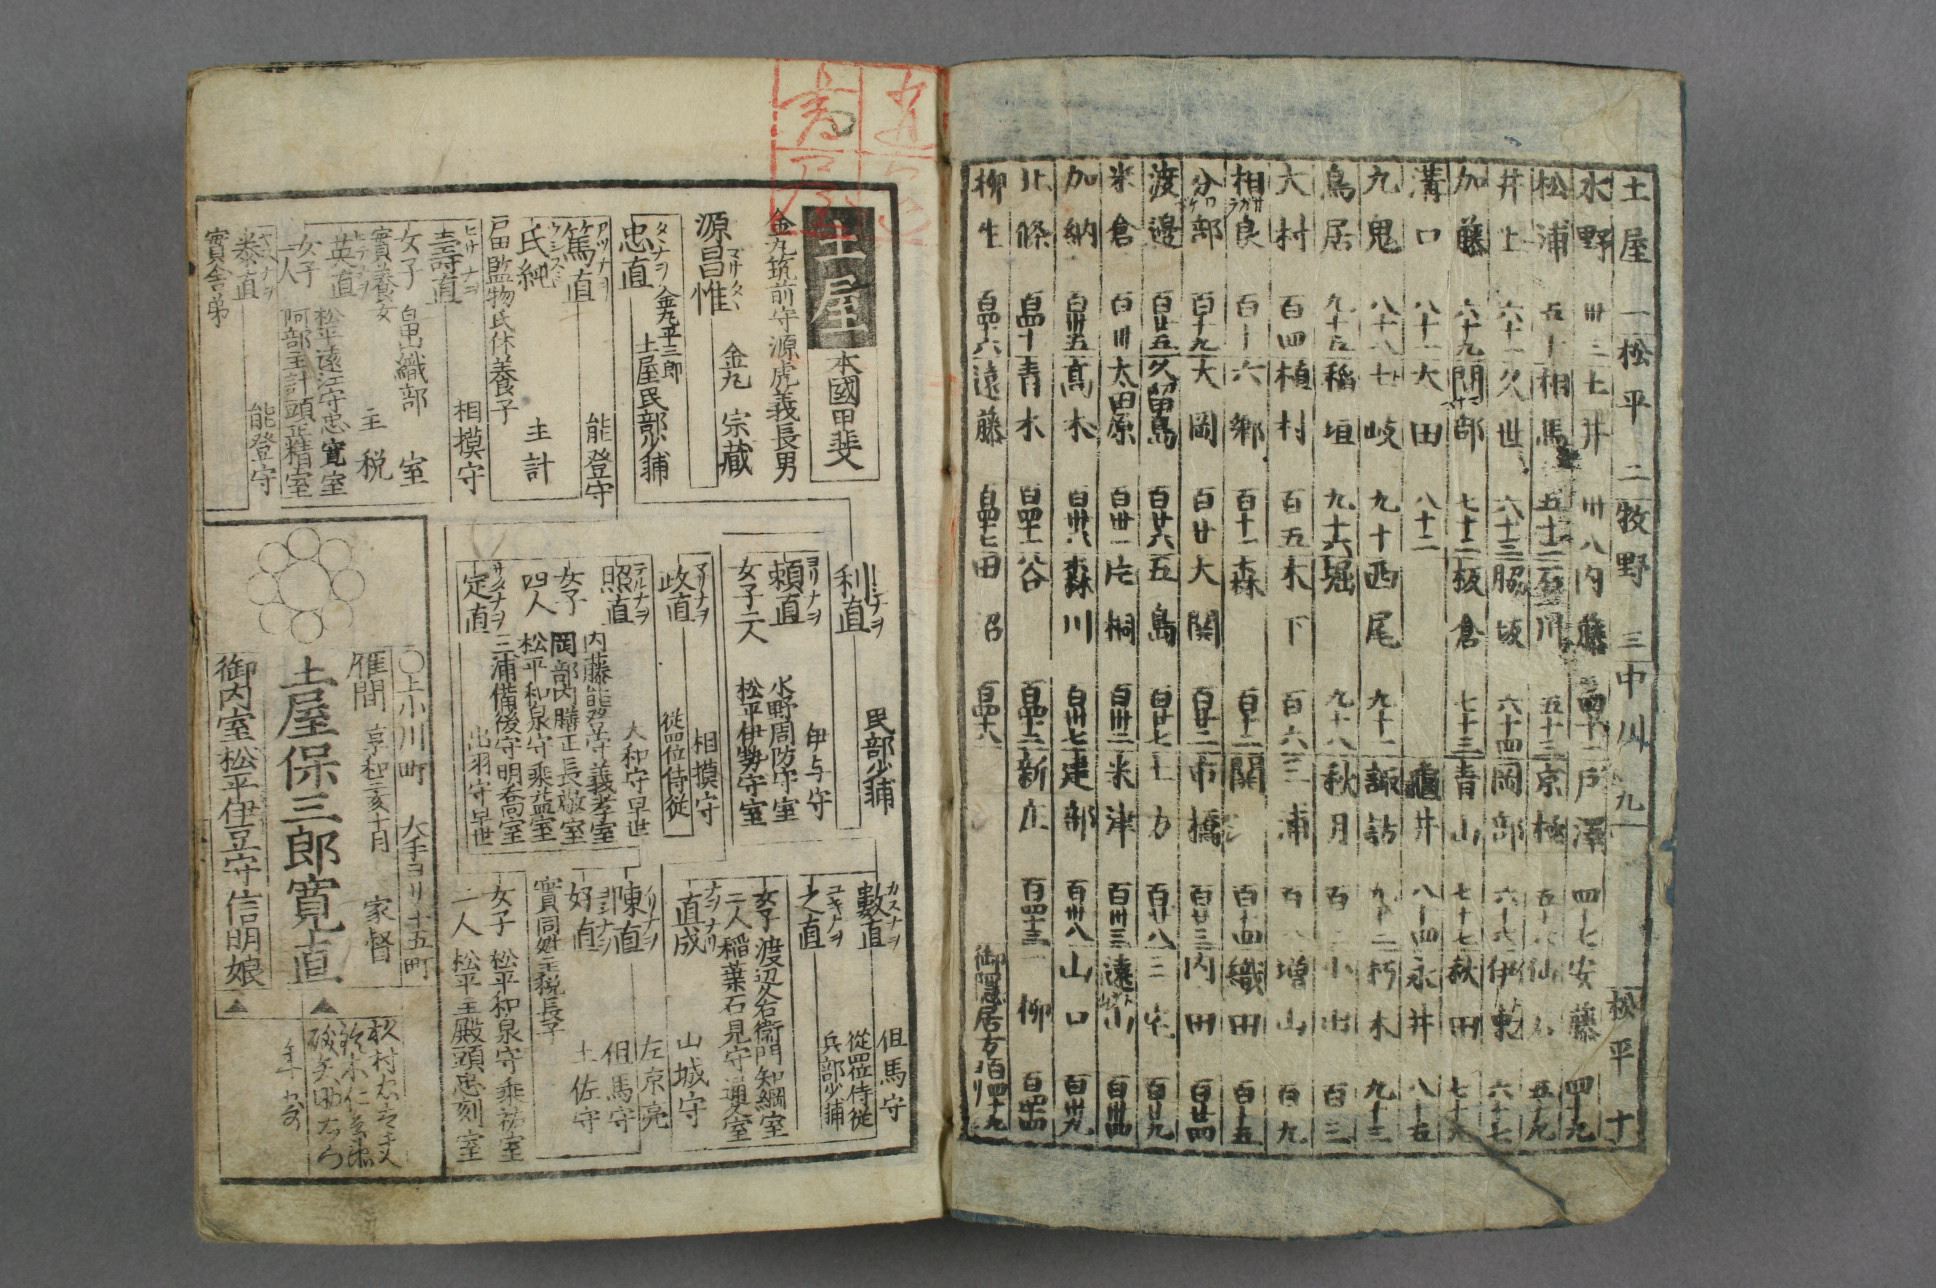 土屋 一 松平 二 牧野 三 中川 九 松平 十
水野 卅三 土井 卅八 内藤 四十二 戸澤 四十七 安藤 四十九
松浦 五十 相馬 五十二 石川 五十三 京極 仙石 五十九
井上 六十一 久世 六十三 脇坂 六十四 岡部 六十六 伊東 六十七
加藤 六十九 間部 七十二 板倉 七十三 青山 七十七 秋田
溝口 八十一 大田 八十二 龜井 八十四 永井 八十五
九鬼 八十八 七 岐 九十 西尾 九十一 諏訪 九十二 朽木 九十三
鳥居 九十五 稲垣 九十六 堀 九十八 秋月 百 小出 百三
大村 百四 植村 百五 木下 百六 三浦 百八 増山 百九
相良 百十 六郷 百十一 森 百十二 關 百十四 織田 百十五
分部 百十九 大岡 百廿 大関 百廿二 市橋 百廿三 内田 百廿四
渡邊 百廿五 久留島 百廿六 五島 百廿七 土方 百廿八 三宅 百廿九
米倉 百卅 太田原 百卅一 片桐 百卅二 米津 百卅三 遠山 百卅四
加納 百卅五 高木 百卅六 森川 百卅七 建部 百卅八 山口 百卅九
北條 百四十 青木 百四十一 谷 百四十二 新庄 百四十三 一柳 百四十四
柳生 百四十六 遠藤 百四十七 田沼 百四十八 御隠居方 百四十九
土屋 本國甲斐
金丸筑前守源虎義長男
源昌惟 マサタヾ 金丸 宗藏
忠直 タヾナヲ 金丸平三郎 土屋民部少輔
利直 トシナヲ 民部少輔
數直 カズナヲ 但馬守 從四位侍從
之直 ユキナヲ 兵部少輔
篤直 アツナヲ 能登守
氏純 主計
戸田監物氏休養子
壽直 ヒサナヲ 相摸守
女子 畠山織部室
實養女
英直 主税
女子 松平遠江守忠寛室
二人 阿部主計頭正精室
泰直 能登守
實舎弟
頼直 ヨリナヲ 伊与守
女子二人 水野周防守室
松平伊勢守室
政直 マサナヲ 相摸守
從四位侍從
照直 テルナヲ 大和守早世
女子 内藤能登守義孝室
四人 岡部内膳正長敬室
松平和泉守乘益室
三浦備後守明喬室
定直 サダナヲ 出羽守早世
女子 渡辺久右衛門知綱室
二人 稲葉石見守通久室
直成 ナヲナリ 山城守
陳直 ノリナヲ 左京亮 但馬守
好直 ヨシナヲ 土佐守
實同姓主税長子
女子 松平和泉守乘祐室
二人 松平主殿頭忠刻室
○上小川町 大手ヨリ十五町
雁間 享和三亥十月 家督
土屋保三郎寛直
御内室松平伊豆守信明娘